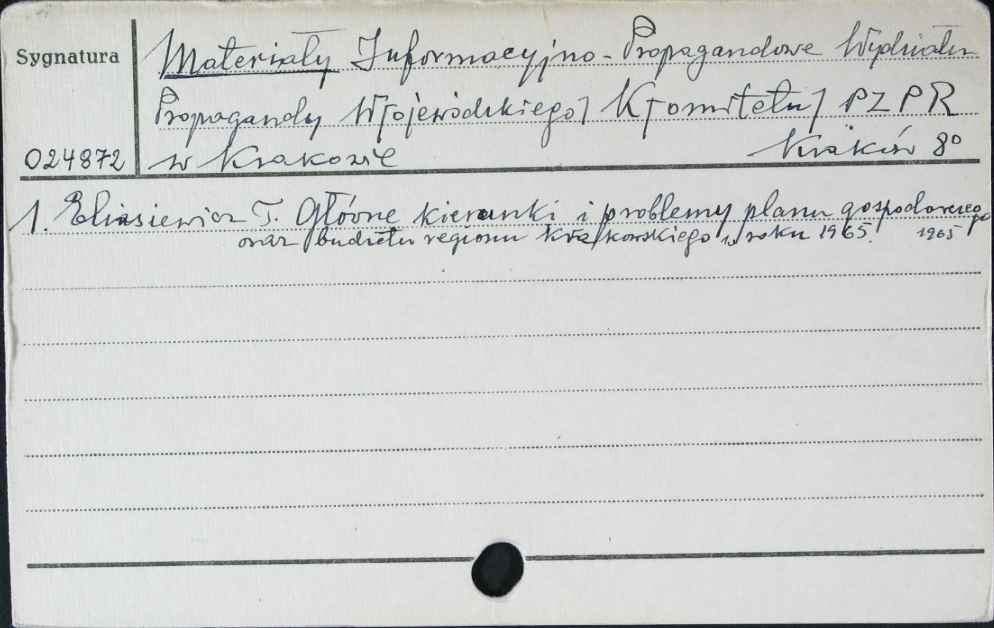 Sygnatura
Materiały Informacyjno-Propagandowe Wydziału
Propagandy W[ojewódzkiego] K[omitetu] PZPR
024872 w Krakowie Kraków 8°
1. Eliasiewicz T. Główne kierunki i problemy planu gospodarczego
oraz budżetu regionu krakowskiego w roku 1965. 1965